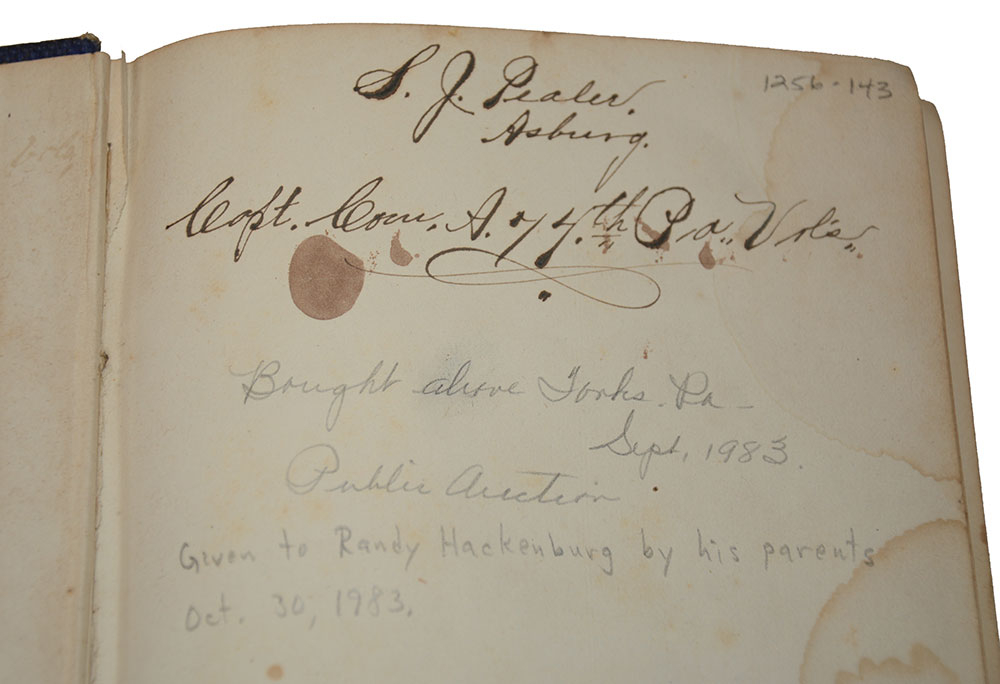 1256-143
S. J. Pealer.
Asbury.
Capt. Com. A. 74.th Pa. Vols.
Bought above Forks. Pa -
Sept, 1983.
Public Auction.
Given to Randy Hackenburg by his parents
Oct. 30, 1983.